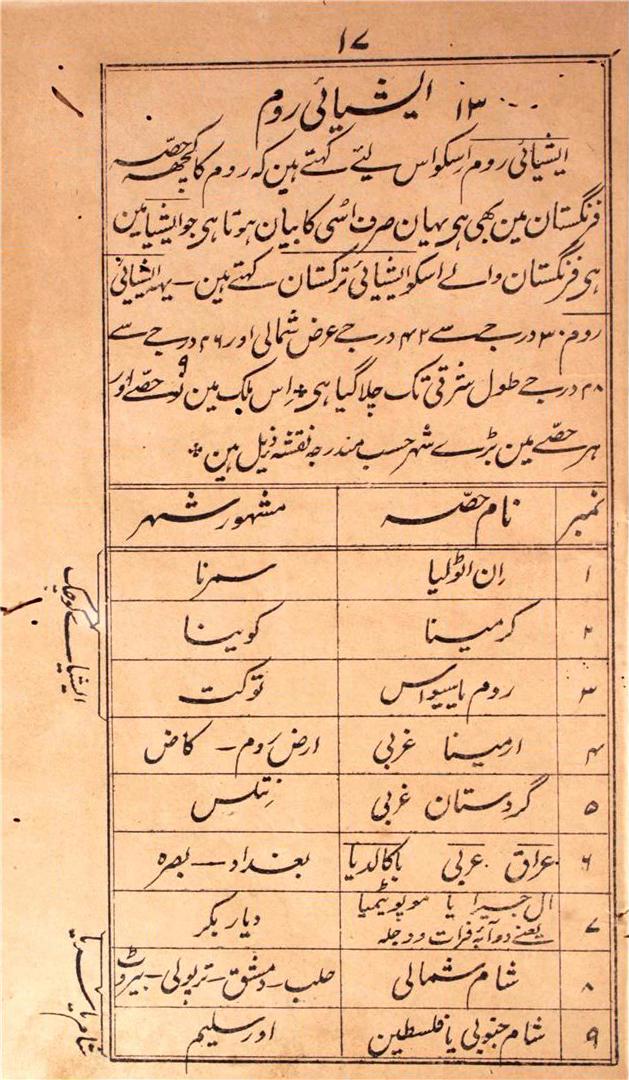 ۱۷
۱۳ ایشیائی روم
ایشیائی روم اِسکو اس لیئے کہتے ہین کہ روم کا کچھہ حصّہ
فرنگستان مین بھی ہی یہان صرف اُسی کا بیان ہوتا ہی جو ایشیا مین
ہی فرنگستان والے اسکو ایشیائی ترکستان کہتے ہین - یہہ ایشیائی
روم ۳۰ درجے سے ۴۲ درجے عرض شمالی اور ۲۶ درجے سے
۴۸ درجے طول شرقی تک چلا گیا ہی * اِس ملک مین ۹ نو حصّے اور
ہر حصّے مین بڑے شہر حسب مندرجہ نقشہ ذیل ہین *
نمبر نام حصّہ مشہور شہر
۱ اِن اٹولیا سمرنا
۲ کرمینا کوینا
۳ روم یا سیواس توکت
۴ ارمینا غربی ارض روم - کاض
۵ گردستان غربی نتلس
۶ عراق عربی یا کالدیا بغداد - بصرہ
۷ ال جیرا یا موپوٹیمیا دیار بکر
یعنے دوآبۂ فرات و دجلہ
۸ شام شمالی حلب - دمشق - ترپولی - بیروت
۹ شام جنوبی یا فلسطین اورسلیم
ایشیاے کوچک
شام یا